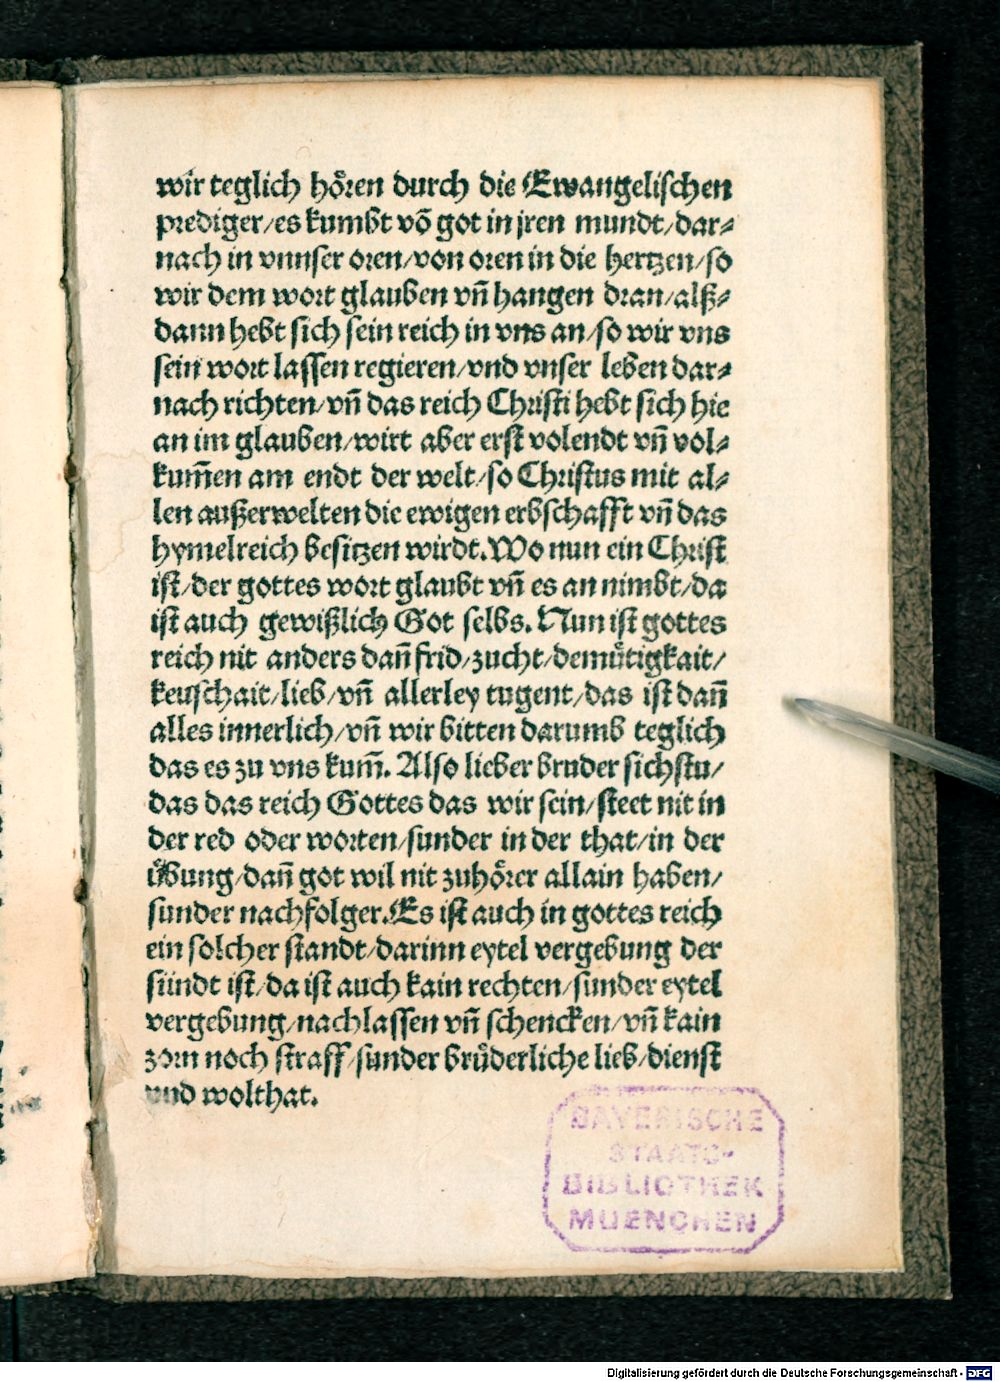 wir teglich hoͤren durch die Ewangelischen
prediger/es kumbt võ got in jren mundt/dar⸗
nach in vnnser oren/von oren in die hertzen/so
wir dem wort glauben vñ hangen dran/alß⸗
dann hebt sich sein reich in vns an/so wir vns
sein wort lassen regieren/vnd vnser leben dar⸗
nach richten/vñ das reich Christi hebt sich hie
an im glauben/wirt aber erst volendt vñ vol⸗
kum̃en am endt der welt/so Christus mit al⸗
len außerwelten die ewigen erbschafft vñ das
hymelreich besitzen wirdt. Wo nun ein Christ
ist/der gottes wort glaubt vñ es an nimbt/da
ist auch gewißlich Got selbs. Nun ist gottes
reich nit anders dañ frid/zucht/demuͤtigkait/
keuschait/lieb/vñ allerley tugent/das ist dañ
alles innerlich/vñ wir bitten darumb teglich
das es zu vns kum̃. Also lieber bruder sichstu/
das das reich Gottes das wir sein/steet nit in
der red oder worten/sunder in der that/in der
uͤbung/dañ got wil nit zuhoͤrer allain haben/
sunder nachfolger. Es ist auch in gottes reich
ein solcher standt/darinn eytel vergebung der
sündt ist/da ist auch kain rechten/sunder eytel
vergebung/nachlassen vñ schencken/vñ kain
zorn noch straff/sunder bruͤderliche lieb/dienst
vnd wolthat.
BAYERISCHE
STAATS-
BIBLIOTHEK
MUENCHEN
Digitalisierung gefördert durch die Deutsche Forschungsgemeinschaft - DFG